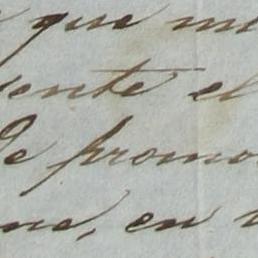 que mi
ente el
De promo
ne, en